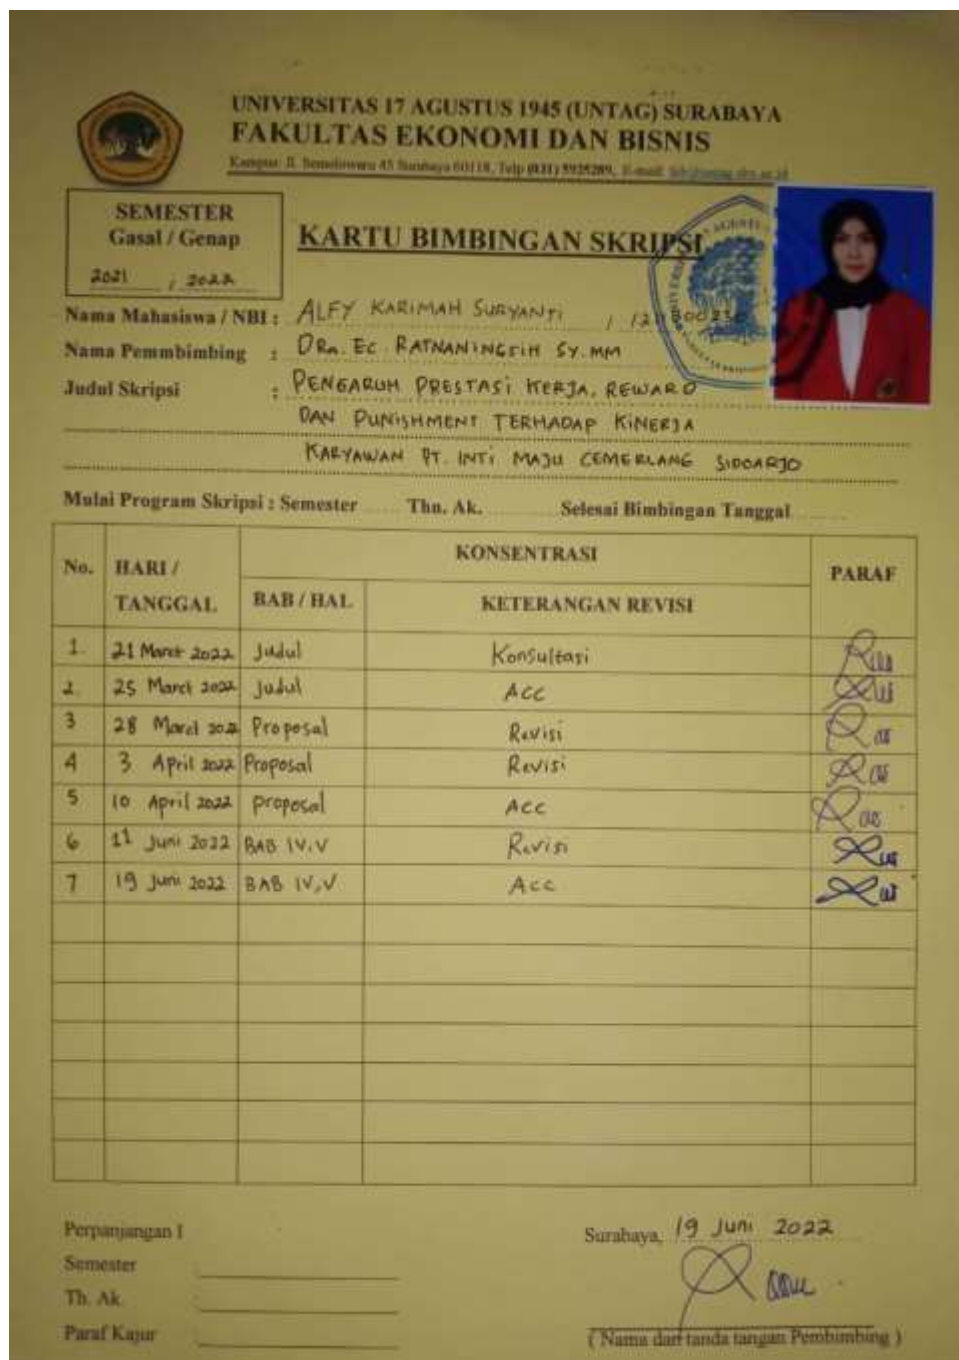 UNIVERSITAS 17 AGUSTUS 1945 (UNTAG) SURABAYA
FAKULTAS EKONOMI DAN BISNIS
Kampus: Jl. Semolowaru 45 Surabaya 60118, Telp (031) 5925289, E-mail:
SEMESTER
Gasal / Genap
2021 / 2022
KARTU BIMBINGAN SKRIPSI
Nama Mahasiswa / NBI : ALFY KARIMAH SURYANTI /
Nama Pemmbimbing : DRA. EC. RATNANINGSIH SY. MM
Judul Skripsi : PENGARUH PRESTASI KERJA, REWARD
DAN PUNISHMENT TERHADAP KINERJA
KARYAWAN PT. INTI MAJU CEMERLANG SIDOARJO
Mulai Program Skripsi : Semester Thn. Ak. Selesai Bimbingan Tanggal
No. HARI / TANGGAL KONSENTRASI PARAF
BAB / HAL. KETERANGAN REVISI
1. 21 Maret 2022 Judul Konsultasi
2. 25 Maret 2022 Judul Acc
3 28 Maret 2022 Proposal Revisi
4 3 April 2022 Proposal Revisi
5 10 April 2022 proposal Acc
6 11 Juni 2022 BAB IV,V Revisi
7 19 Juni 2022 BAB IV,V Acc
Perpanjangan I
Semester
Th. Ak.
Paraf Kajur
Surabaya, 19 Juni 2022
( Nama dan tanda tangan Pembimbing )